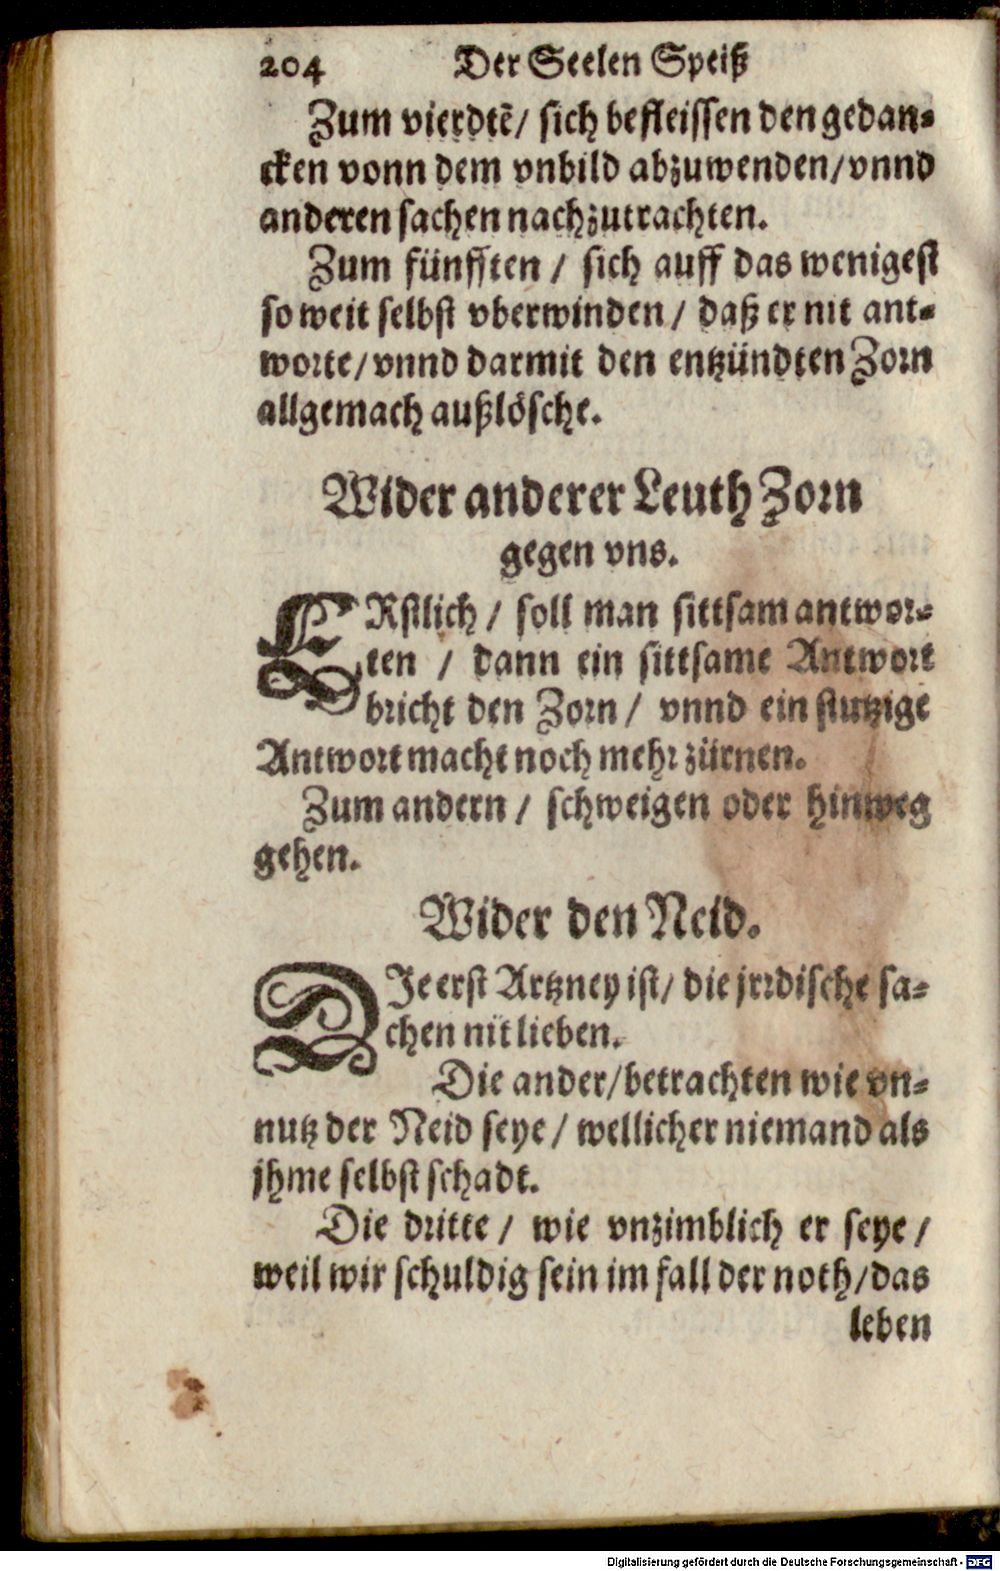 204 Der Seelen Speiß
Zum vierdtẽ/ sich befleissen den gedan-
cken vonn dem vnbild abzuwenden/vnnd
anderen sachen nachzutrachten.
Zum fünfften / sich auff das wenigest
so weit selbst vberwinden / daß er nit ant-
worte/vnnd darmit den entzündten Zorn
allgemach außlösche.
Wider anderer Leuth Zorn
gegen vns.
ERstlich / soll man sittsam antwor-
ten / dann ein sittsame Antwort
bricht den Zorn / vnnd ein stutzige
Antwort macht noch mehr zürnen.
Zum andern / schweigen oder hinweg
gehen.
Wider den Neid.
DJe erst Artzney ist/ die jrrdische sa-
chen nit lieben.
Die ander/betrachten wie vn-
nutz der Neid seye / wellicher niemand als
jhme selbst schadt.
Die dritte / wie vnzimblich er seye /
weil wir schuldig sein im fall der noth/das
leben
Digitalisierung gefördert durch die Deutsche Forschungsgemeinschaft - DFG